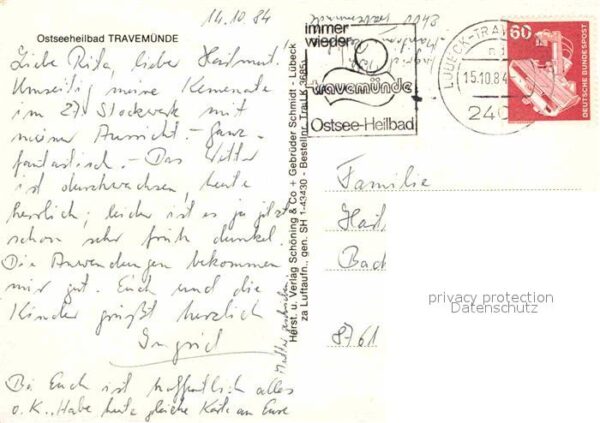 14.10.84
Ostseeheilbad TRAVEMÜNDE
Liebe Rita, lieber Hartmut!
Umseitig meine Kemenate
im 27. Stockwerk mit
meiner Aussicht – ganz
fantastisch. – Das Wetter
ist durchwachsen, heute
herrlich; leider ist es ja jetzt
schon sehr früh dunkel.
Die Anwendungen bekommen
mir gut. Euch und die
Kinder grüßt herzlich
Ingrid
Bei Euch ist hoffentlich alles
o.K.. Habe heute gleiche Karte an Eure
Mutter geschrieben.
Herst. u. Verlag Schöning & Co + Gebrüder Schmidt - Lübeck
za Luftaufn., gen. SH 1-43430 - Bestellnr. Tra LK
2400 Travemünde
immer
wieder
travemünde
Ostsee-Heilbad
LÜBECK-TRAV
15.10.84
240
60
DEUTSCHE BUNDESPOST
Familie
Hart
Bach
8761
privacy protection
Datenschutz